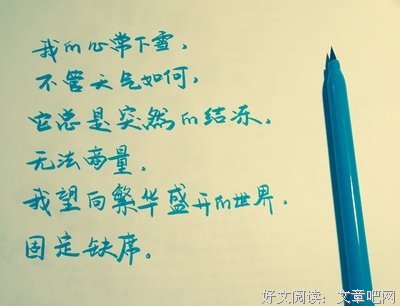 我的心常下雪，
不管天气如何，
它总是突然的结冻，
无法商量，
我望向繁华盛开的世界，
固定缺席。
好文阅读：文章吧网